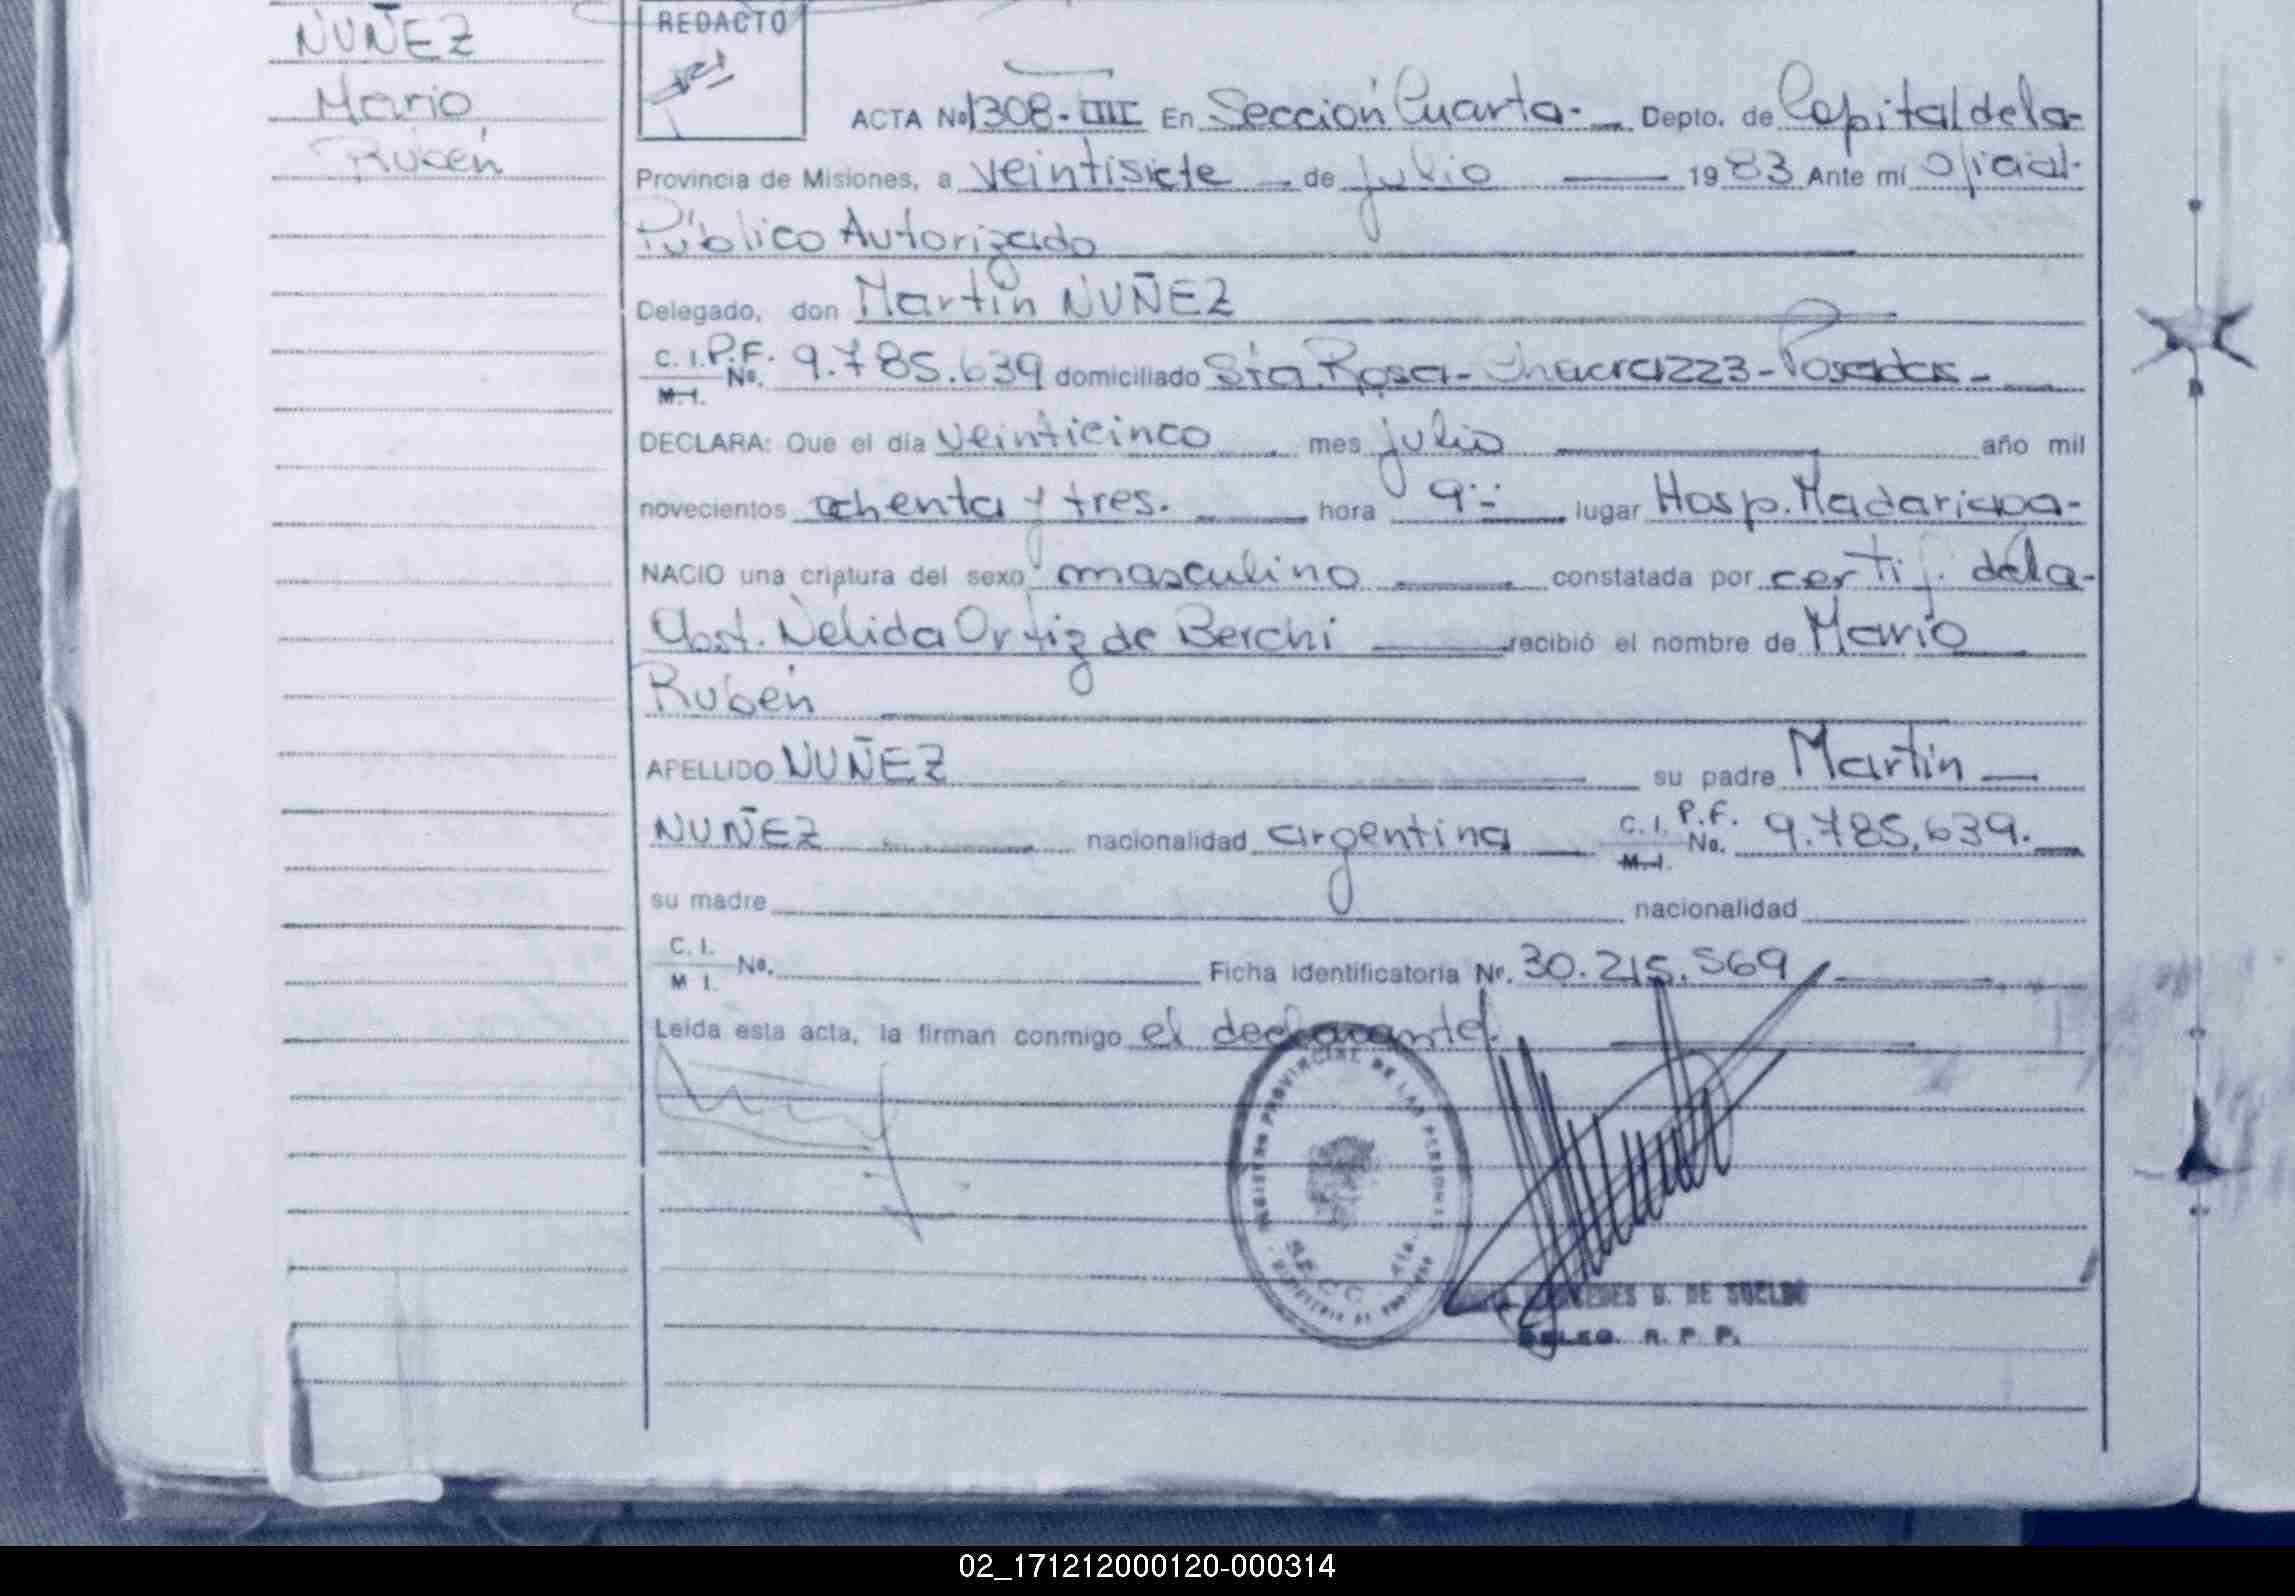 NUÑEZ
Mario
Rubén
REDACTO
ACTA Nº 1308-III En Sección Cuarta- Depto. de Capital de la-
Provincia de Misiones, a veintisiete de julio 1983 Ante mí Oficial-
Público Autorizado
Delegado, don Martin NUÑEZ
C. I. P.F. M. I. No. 9.785.639 domiciliado Sta. Rosa- Chacra 223- Posadas-
DECLARA: Que el día veinticinco mes julio año mil
novecientos ochenta y tres. hora 9:- lugar Hosp. Madariaga-
NACIO una criatura del sexo masculino constatada por certif. de la-
Obst. Nelida Ortiz de Berchi recibió el nombre de Mario
Rubén
APELLIDO NUÑEZ su padre Martin
NUÑEZ nacionalidad argentina C. I. P.F. M. I. No. 9.785.639.
su madre nacionalidad
C. I. M I. No. Ficha identificatoria Nº. 30.215.569
Leída esta acta, la firman conmigo el declarante.
REGISTRO PROVINCIAL DE LAS PERSONAS
SECC. 4ta.
DE SUELDO
DELEG. R. P. P.
02_171212000120-000314